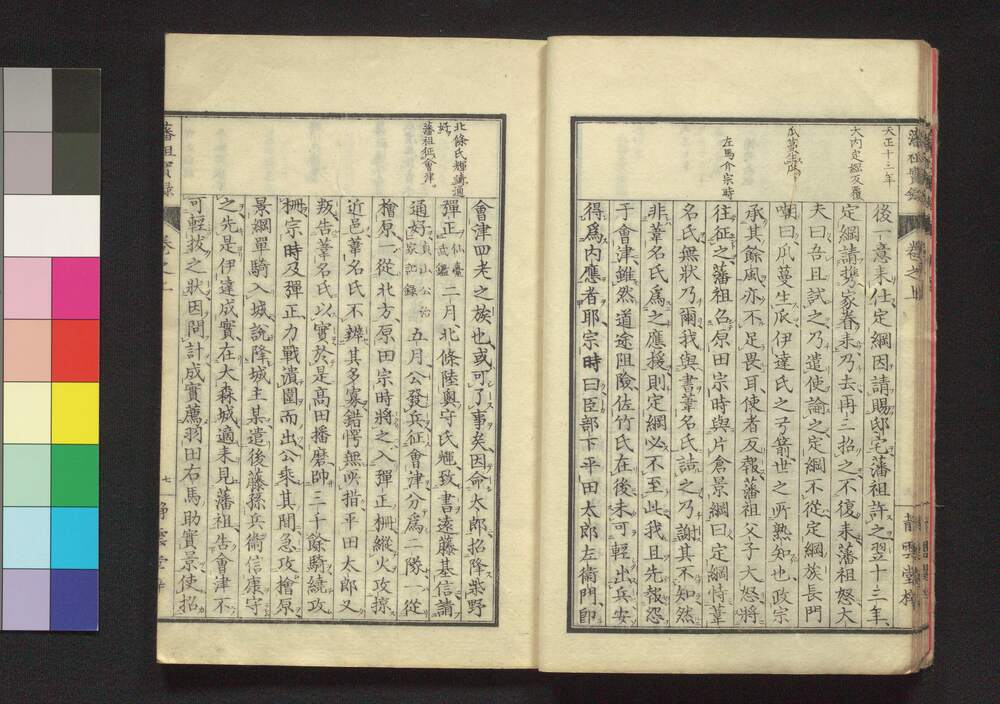 藩祖實錄
卷之上
靜雲堂梓
天正十三年
大内定綱反覆
瓜蔓生瓜
左馬介宗時
後一意來仕定綱因請賜邸宅藩祖許之翌十三年
定綱請携家眷來乃去再三招之不復來藩祖怒大
夫曰吾且試之乃遣使諭之定綱不從定綱族長門
嘲曰瓜蔓生瓜伊達氏之弓箭世之所熟知也政宗
承其餘風亦不足畏耳使者反報藩祖父子大怒將
往征之藩祖召原田宗時與片倉景綱曰定綱恃葦
名氏無狀乃爾我與書葦名氏詰之乃謝其不知然
非葦名氏爲之應援則定綱必不至此我且先報怨
于會津雖然道途阻險佐竹氏在後未可輕出兵安
得爲内應者耶宗時曰臣部下平田太郎左衞門卽
北條氏輝請通
好
藩祖征會津
會津四老之族也或可了事矣因命太郎招降柴野
彈正仙臺武鑑二月北條陸奧守氏輝致書遠藤基信請
通好貞山公治家記錄五月公發兵征會津分爲二隊一從
檜原一從北方原田宗時將之入彈正柵縱火攻掠
近邑葦名氏不辨其多寡錯愕無所措平田太郎又
叛告葦名氏以實於是髙田播磨帥三千餘騎繞攻
柵宗時及彈正力戰潰圍而出公乘其間急攻檜原
景綱單騎入城說降城主某遣後藤孫兵衞信康守
之先是伊達成實在大森城適來見藩祖告會津不
可輕拔之狀因問計成實薦羽田右馬助實景使招
藩祖實錄
卷之上
七
靜雲堂梓